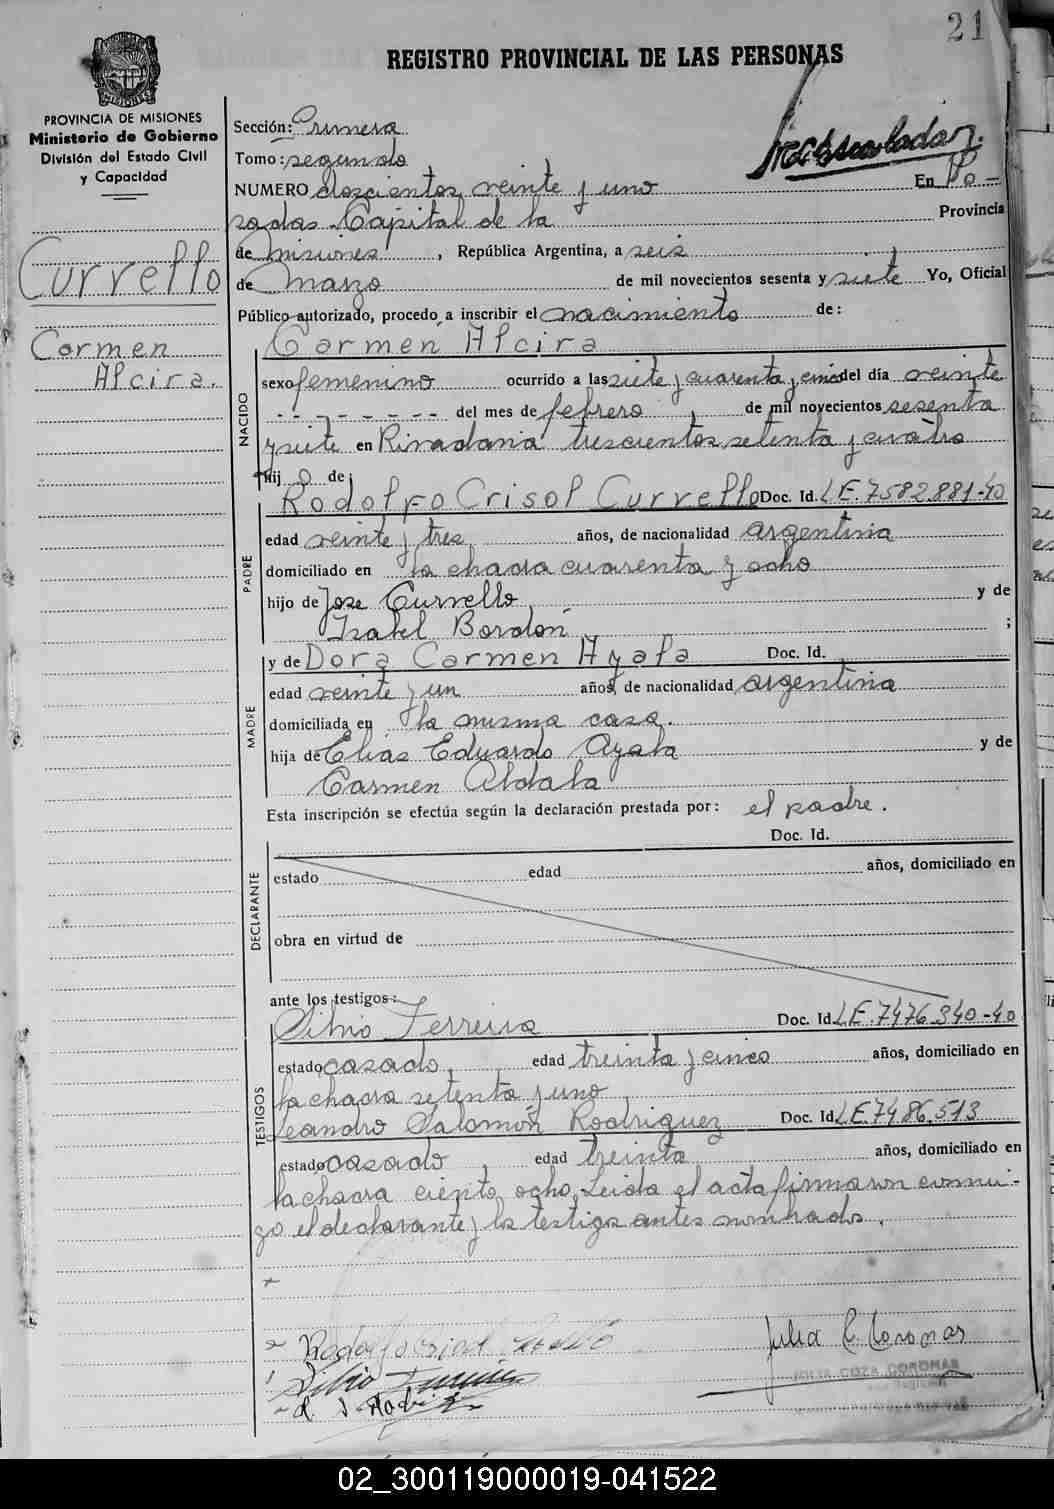 21
REGISTRO PROVINCIAL DE LAS PERSONAS
MISIONES
PROVINCIA DE MISIONES
Ministerio de Gobierno
División del Estado Civil
y Capacidad
Currello
Carmen
Alcira.
Sección: Primera
Tomo: segundo
NUMERO doscientos veinte y uno En Po-
sadas Capital de la Provincia
de Misiones, República Argentina, a seis
de Marzo de mil novecientos sesenta y siete Yo, Oficial
Público autorizado, procedo a inscribir el nacimiento de:
NACIDO
Carmen Alcira
sexo femenino ocurrido a las siete y cuarenta y cinco del día veinte
- - - - - - - - del mes de febrero, de mil novecientos sesenta
y siete en Rivadavia trescientos setenta y cuatro
hij a de:
PADRE
Rodolfo Crisol Currello Doc. Id. LE.7582.881-40
edad veinte y tres años, de nacionalidad argentina
domiciliado en la chacra cuarenta y ocho
hijo de Jose Currello y de
Isabel Bordón ;
MADRE
y de Dora Carmen Ayala Doc. Id.
edad veinte y un años, de nacionalidad argentina
domiciliada en la misma casa.
hija de Elias Eduardo Ayala y de
Carmen Aldala
Esta inscripción se efectúa según la declaración prestada por: el padre.
Doc. Id.
DECLARANTE
estado edad años, domiciliado en
obra en virtud de
ante los testigos:
TESTIGOS
Silvio Ferreira Doc. Id. LE.7476.340-40
estado casado, edad treinta y cinco años, domiciliado en
la chacra setenta y uno
Leandro Salomón Rodriguez Doc. Id. LE.7486.513
estado casado, edad treinta años, domiciliado en
la chacra ciento ocho. Leida el acta firmaron conmi-
go el declarante y los testigos antes nombrados.
Julia C. Coronas
JULIA COZA CORONAS
02_300119000019-041522